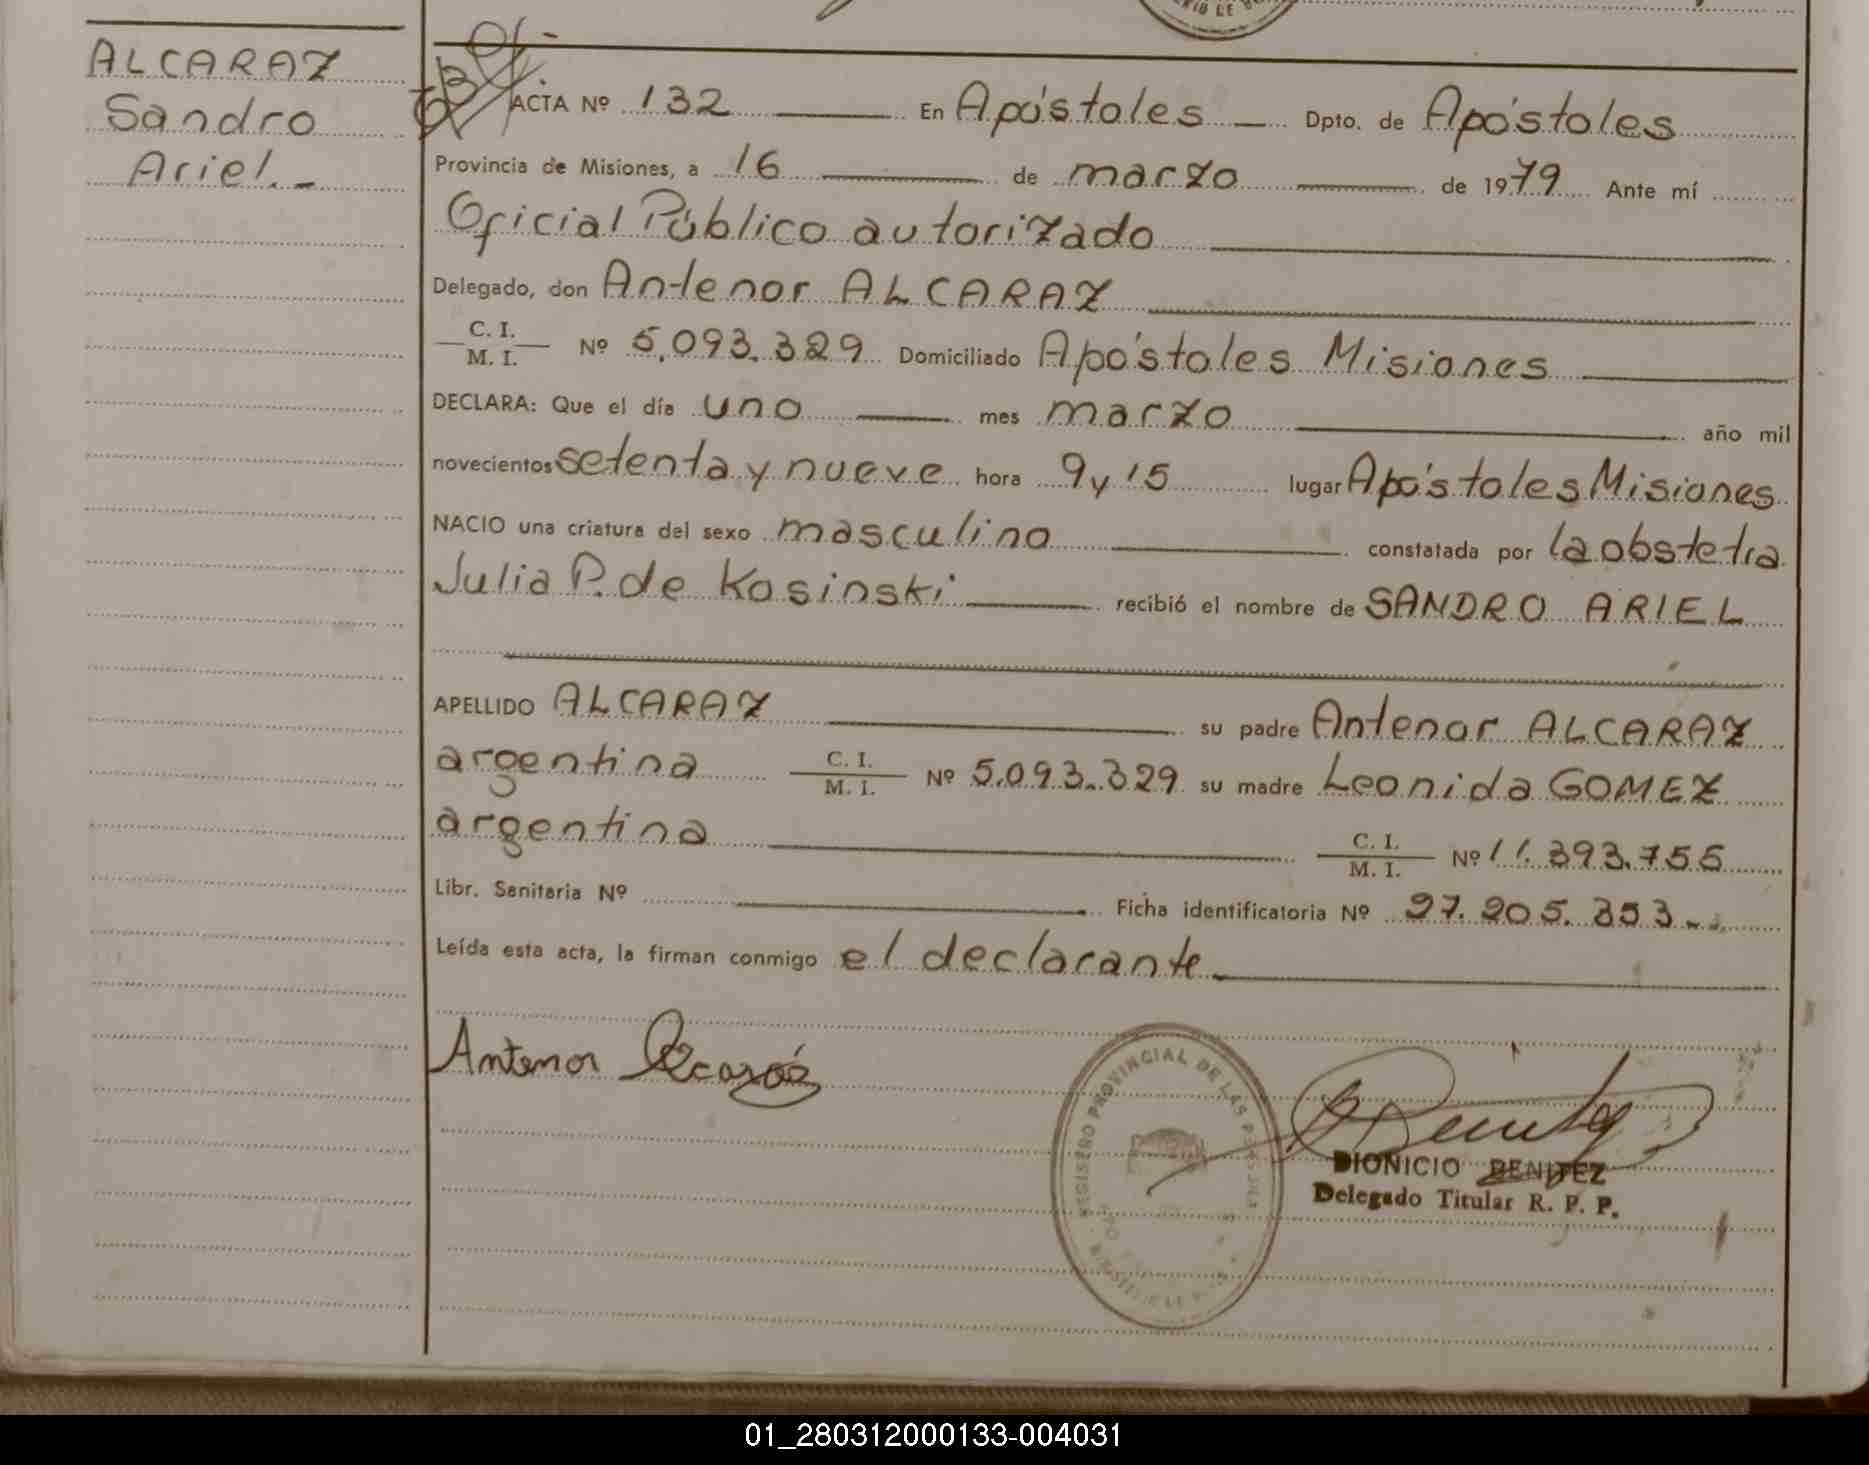 ALCARAZ
Sandro
Ariel.-
ACTA Nº 132 En Apóstoles Dpto. de Apóstoles
Provincia de Misiones, a 16 de marzo de 1979 Ante mí
Oficial Público autorizado
Delegado, don Antenor ALCARAZ
C. I.
M. I. Nº 5.093.329 Domiciliado Apóstoles Misiones
DECLARA: Que el día uno mes marzo año mil
novecientos setenta y nueve hora 9 y 15 lugar Apóstoles Misiones
NACIO una criatura del sexo masculino constatada por la obstetra
Julia P. de Kosinski recibió el nombre de SANDRO ARIEL
APELLIDO ALCARAZ su padre Antenor ALCARAZ
argentina C. I. M. I. Nº 5.093.329 su madre Leonida GOMEZ
argentina C. I. M. I. Nº 11.393.755
Libr. Sanitaria Nº Ficha identificatoria Nº 27.205.353.-
Leída esta acta, la firman conmigo el declarante
Antenor Alcaraz
REGISTRO PROVINCIAL DE LAS PERSONAS
DIONICIO BENITEZ
Delegado Titular R. P. P.
01_280312000133-004031